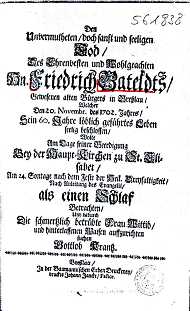 561838
Den
Unvermutheten / doch sanfft und seeligen
Tod /
Des Ehrenvesten und Wohlgeachten
Hn. Friedrich Gateldts /
Gewesenen alten Bürgers in Breßlau /
Welcher
Den 20. Novembr. des 1702. Jahres /
Sein 60. Jahre löblich geführtes Leben
seelig beschlossen /
Wolte
Am Tage seiner Beerdigung
Bey der Haupt-Kirchen zu St. Eli-
sabet /
Am 24. Sontage nach dem Feste der Heil. Dreyfaltigkeit /
Nach Anleitung des Evangelii /
als einen Schlaf
Betrachten /
Und dadurch
Die schmertzlich betrübte Frau Wittib /
und hinterlassenen Waisen auffzurichten
suchen
Gottlob Krantz.
Breßlau /
In der Baumannischen Erben Druckerey /
druckts Johann Jancke / Factor.